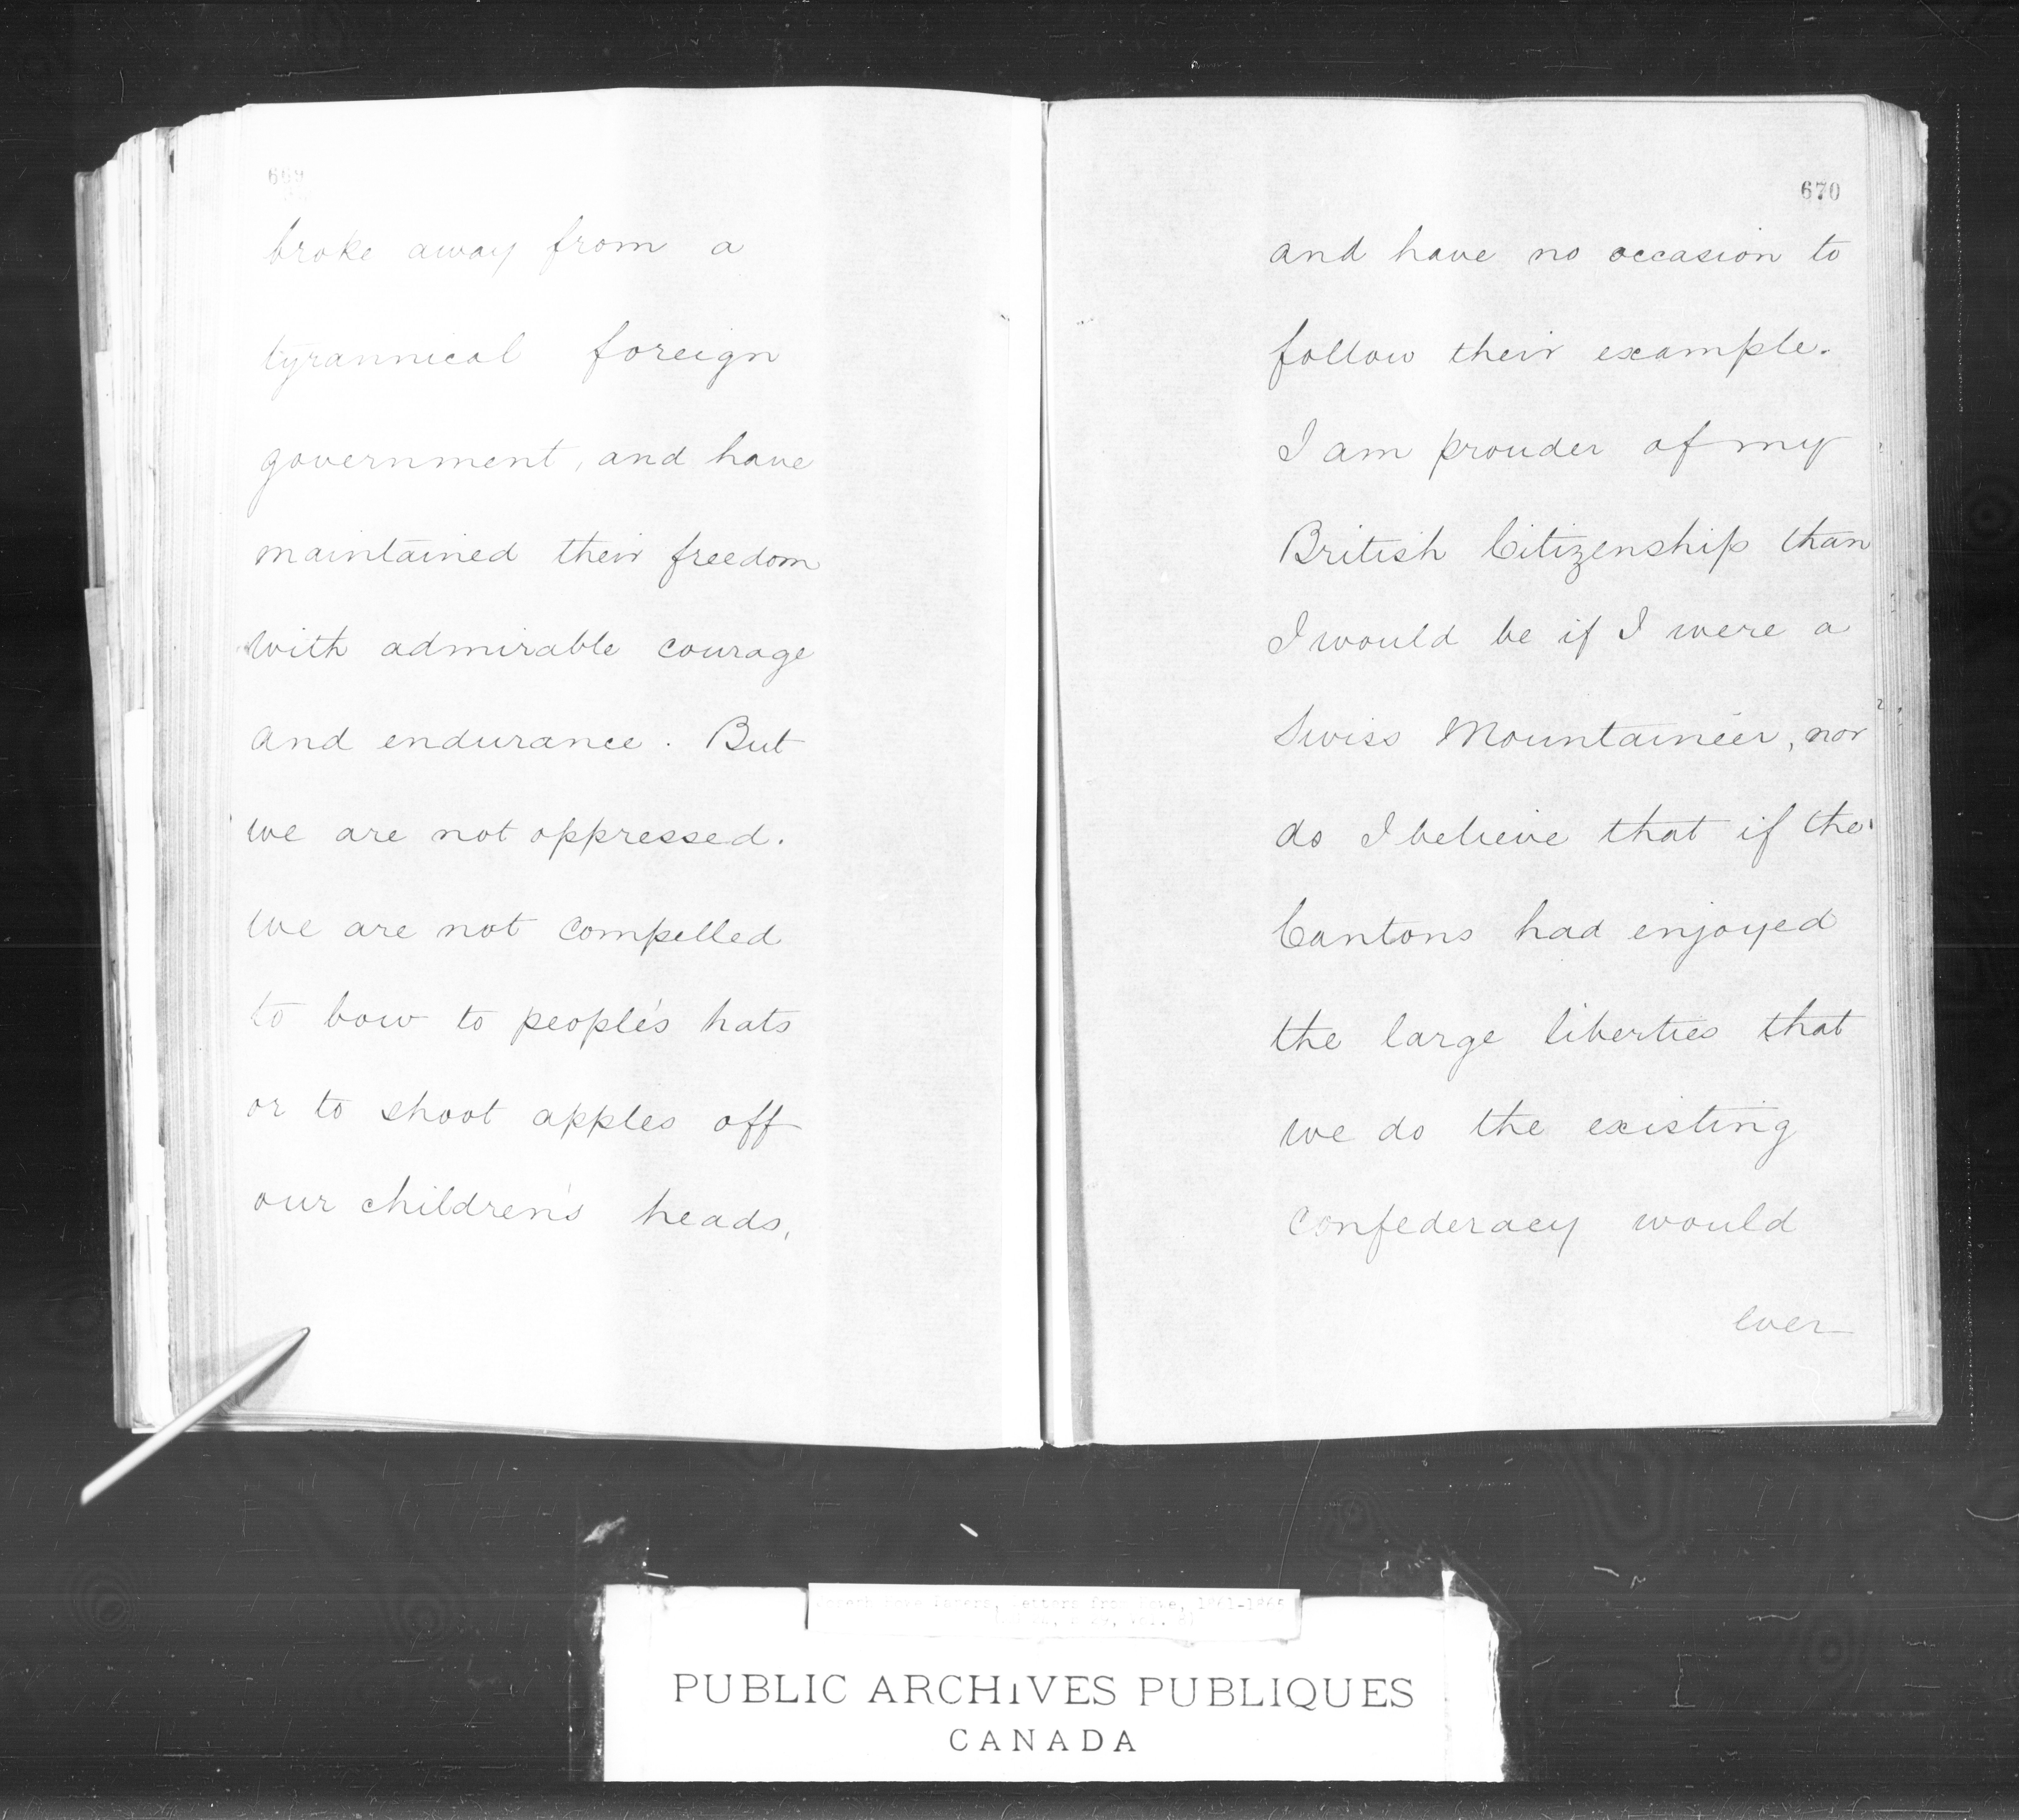 669
broke away from a
tyrannical foreign
government, and have
maintained their freedom
with admirable courage
and endurance. But
we are not oppressed.
we are not compelled
to bow to people's hats
or to shoot apples off
our children's heads,
670
and have no occasion to
follow their example.
I am prouder of my
British Citizenship than
I would be if I were a
Swiss Mountaineer, nor
do I believe that if the
Cantons had enjoyed
the large liberties that
we do the existing
confederacy would
ever
PUBLIC ARCHIVES PUBLIQUES
CANADA